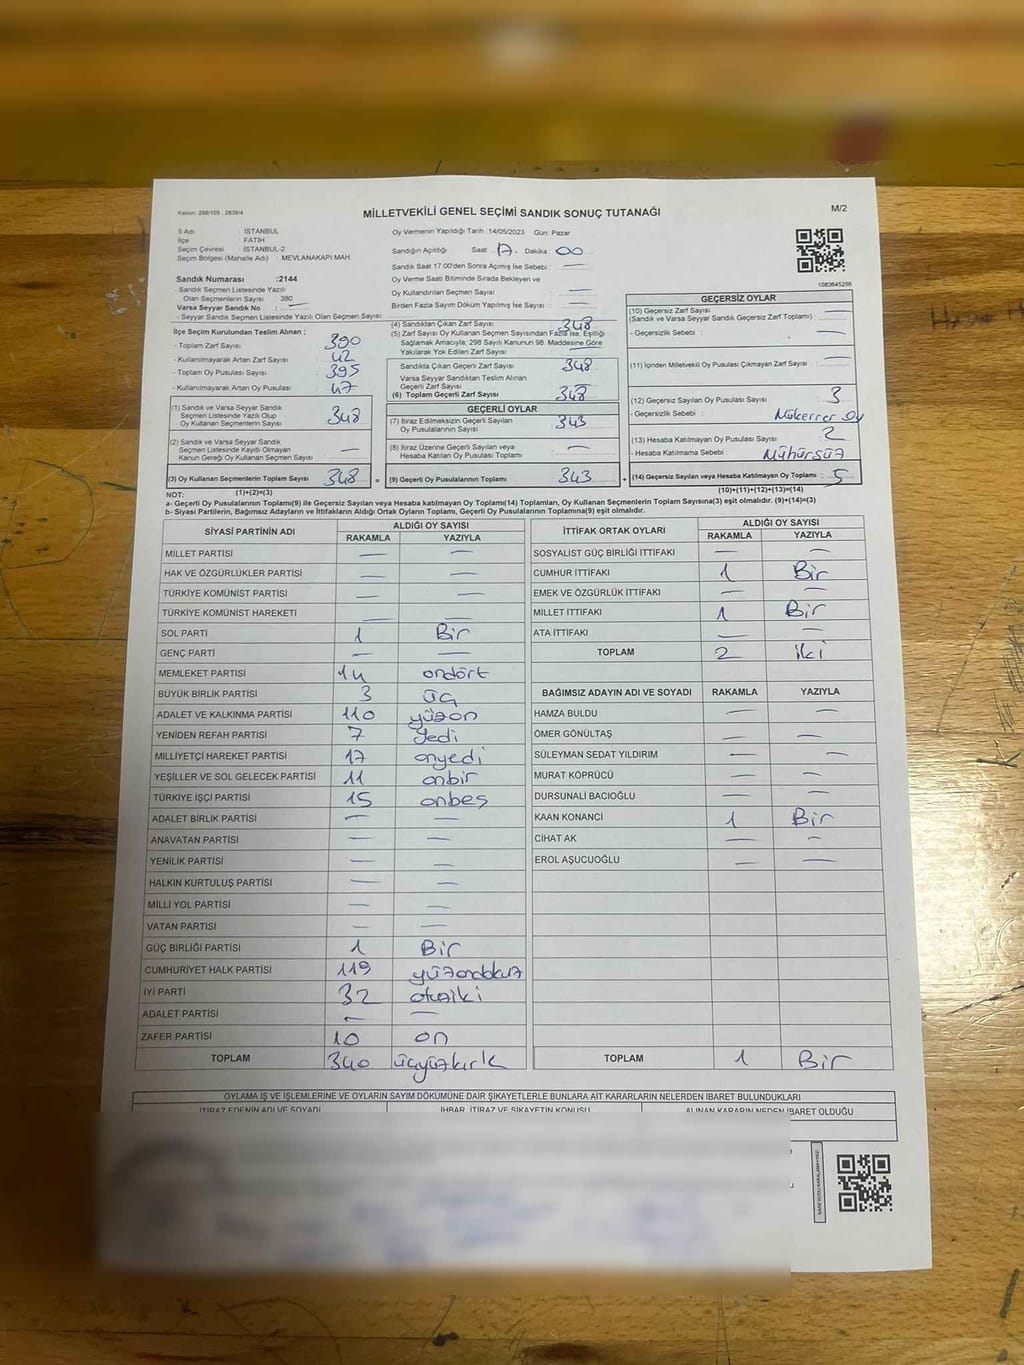 Kanun: 298/105 , 2839/4
MİLLETVEKİLİ GENEL SEÇİMİ SANDIK SONUÇ TUTANAĞI
M/2
İl Adı : İSTANBUL
İlçe FATİH
Seçim Çevresi İSTANBUL-2
Seçim Bölgesi (Mahalle Adı) : MEVLANAKAPI MAH.
Oy Vermenin Yapıldığı Tarih :14/05/2023 Gün: Pazar
Sandığın Açıldığı Saat 17. Dakika 00
Sandık Saat 17.00'den Sonra Açılmış İse Sebebi : —
Oy Verme Saati Bitiminde Sırada Bekleyen ve
Oy Kullandırılan Seçmen Sayısı : —
Birden Fazla Sayım Döküm Yapılmış İse Sayısı : —
1083645256
Sandık Numarası :2144
- Sandık Seçmen Listesinde Yazılı
Olan Seçmenlerin Sayısı 380
Varsa Seyyar Sandık No : —
- Seyyar Sandık Seçmen Listesinde Yazılı Olan Seçmen Sayısı
İlçe Seçim Kurulundan Teslim Alınan ;
- Toplam Zarf Sayısı 390
- Kullanılmayarak Artan Zarf Sayısı 42
- Toplam Oy Pusulası Sayısı 395
- Kullanılmayarak Artan Oy Pusulası 47
(1) Sandık ve Varsa Seyyar Sandık
Seçmen Listesinde Yazılı Olup
Oy Kullanan Seçmenlerin Sayısı 348
(2) Sandık ve Varsa Seyyar Sandık
Seçmen Listesinde Kayıtlı Olmayan
Kanun Gereği Oy Kullanan Seçmen Sayısı —
(3) Oy Kullanan Seçmenlerin Toplam Sayısı 348 =
(1)+(2)=(3)
(4) Sandıktan Çıkan Zarf Sayısı 348
(5) Zarf Sayısı Oy Kullanan Seçmen Sayısından Fazla İse, Eşitliği
Sağlamak Amacıyla, 298 Sayılı Kanunun 98. Maddesine Göre
Yakılarak Yok Edilen Zarf Sayısı —
Sandıkta Çıkan Geçerli Zarf Sayısı 348
Varsa Seyyar Sandıktan Teslim Alınan
Geçerli Zarf Sayısı —
(6) Toplam Geçerli Zarf Sayısı 348
GEÇERLİ OYLAR
(7) İtiraz Edilmeksizin Geçerli Sayılan
Oy Pusulalarının Sayısı 343
(8) İtiraz Üzerine Geçerli Sayılan veya
Hesaba Katılan Oy Pusulası Toplamı —
(9) Geçerli Oy Pusulalarının Toplamı : 343 +
GEÇERSİZ OYLAR
(10) Geçersiz Zarf Sayısı
(Sandık ve Varsa Seyyar Sandık Geçersiz Zarf Toplamı) : —
- Geçersizlik Sebebi : —
(11) İçinden Milletvekili Oy Pusulası Çıkmayan Zarf Sayısı : —
(12) Geçersiz Oy Pusulası Sayısı : 3
- Geçersizlik Sebebi : Mükerrer oy
(13) Hesaba Katılmayan Oy Pusulası Sayısı : 2
- Hesaba Katılmama Sebebi : Mühürsüz
(14) Geçersiz Sayılan veya Hesaba Katılmayan Oy Toplamı : 5
(10)+(11)+(12)+(13)=(14)
NOT:
a- Geçerli Oy Pusulalarının Toplamı(9) ile Geçersiz Sayılan veya Hesaba katılmayan Oy Toplamı(14) Toplamları, Oy Kullanan Seçmenlerin Toplam Sayısına(3) eşit olmalıdır. (9)+(14)=(3)
b- Siyasi Partilerin, Bağımsız Adayların ve İttifakların Aldığı Ortak Oyların Toplamı, Geçerli Oy Pusulalarının Toplamına(9) eşit olmalıdır.
SİYASİ PARTİNİN ADI ALDIĞI OY SAYISI
RAKAMLA YAZIYLA
MİLLET PARTİSİ — —
HAK VE ÖZGÜRLÜKLER PARTİSİ — —
TÜRKİYE KOMÜNİST PARTİSİ — —
TÜRKİYE KOMÜNİST HAREKETİ
SOL PARTİ 1 Bir
GENÇ PARTİ — —
MEMLEKET PARTİSİ 14 ondört
BÜYÜK BİRLİK PARTİSİ 3 üç
ADALET VE KALKINMA PARTİSİ 110 yüzon
YENİDEN REFAH PARTİSİ 7 yedi
MİLLİYETÇİ HAREKET PARTİSİ 17 onyedi
YEŞİLLER VE SOL GELECEK PARTİSİ 11 onbir
TÜRKİYE İŞÇİ PARTİSİ 15 onbeş
ADALET BİRLİK PARTİSİ — —
ANAVATAN PARTİSİ — —
YENİLİK PARTİSİ — —
HALKIN KURTULUŞ PARTİSİ — —
MİLLİ YOL PARTİSİ — —
VATAN PARTİSİ — —
GÜÇ BİRLİĞİ PARTİSİ 1 Bir
CUMHURİYET HALK PARTİSİ 119 yüzondokuz
İYİ PARTİ 32 otuziki
ADALET PARTİSİ — —
ZAFER PARTİSİ 10 on
TOPLAM 340 üçyüzkırk
İTTİFAK ORTAK OYLARI ALDIĞI OY SAYISI
RAKAMLA YAZIYLA
SOSYALİST GÜÇ BİRLİĞİ İTTİFAKI — —
CUMHUR İTTİFAKI 1 Bir
EMEK VE ÖZGÜRLÜK İTTİFAKI — —
MİLLET İTTİFAKI 1 Bir
ATA İTTİFAKI — —
TOPLAM 2 iki
BAĞIMSIZ ADAYIN ADI VE SOYADI RAKAMLA YAZIYLA
HAMZA BULDU — —
ÖMER GÖNÜLTAŞ — —
SÜLEYMAN SEDAT YILDIRIM — —
MURAT KÖPRÜCÜ — —
DURSUNALİ BACIOĞLU — —
KAAN KONANCİ 1 Bir
CİHAT AK — —
EROL AŞUCUOĞLU — —
TOPLAM 1 Bir
OYLAMA İŞ VE İŞLEMLERİNE VE OYLARIN SAYIM DÖKÜMÜNE DAİR ŞİKAYETLERLE BUNLARA AİT KARARLARIN NELERDEN İBARET BULUNDUKLARI
İTİRAZ EDENİN ADI VE SOYADI İHBAR, İTİRAZ VE ŞİKAYETİN KONUSU ALINAN KARARIN NEDEN İBARET OLDUĞU
KARE KODU KARALAMAYINIZ!